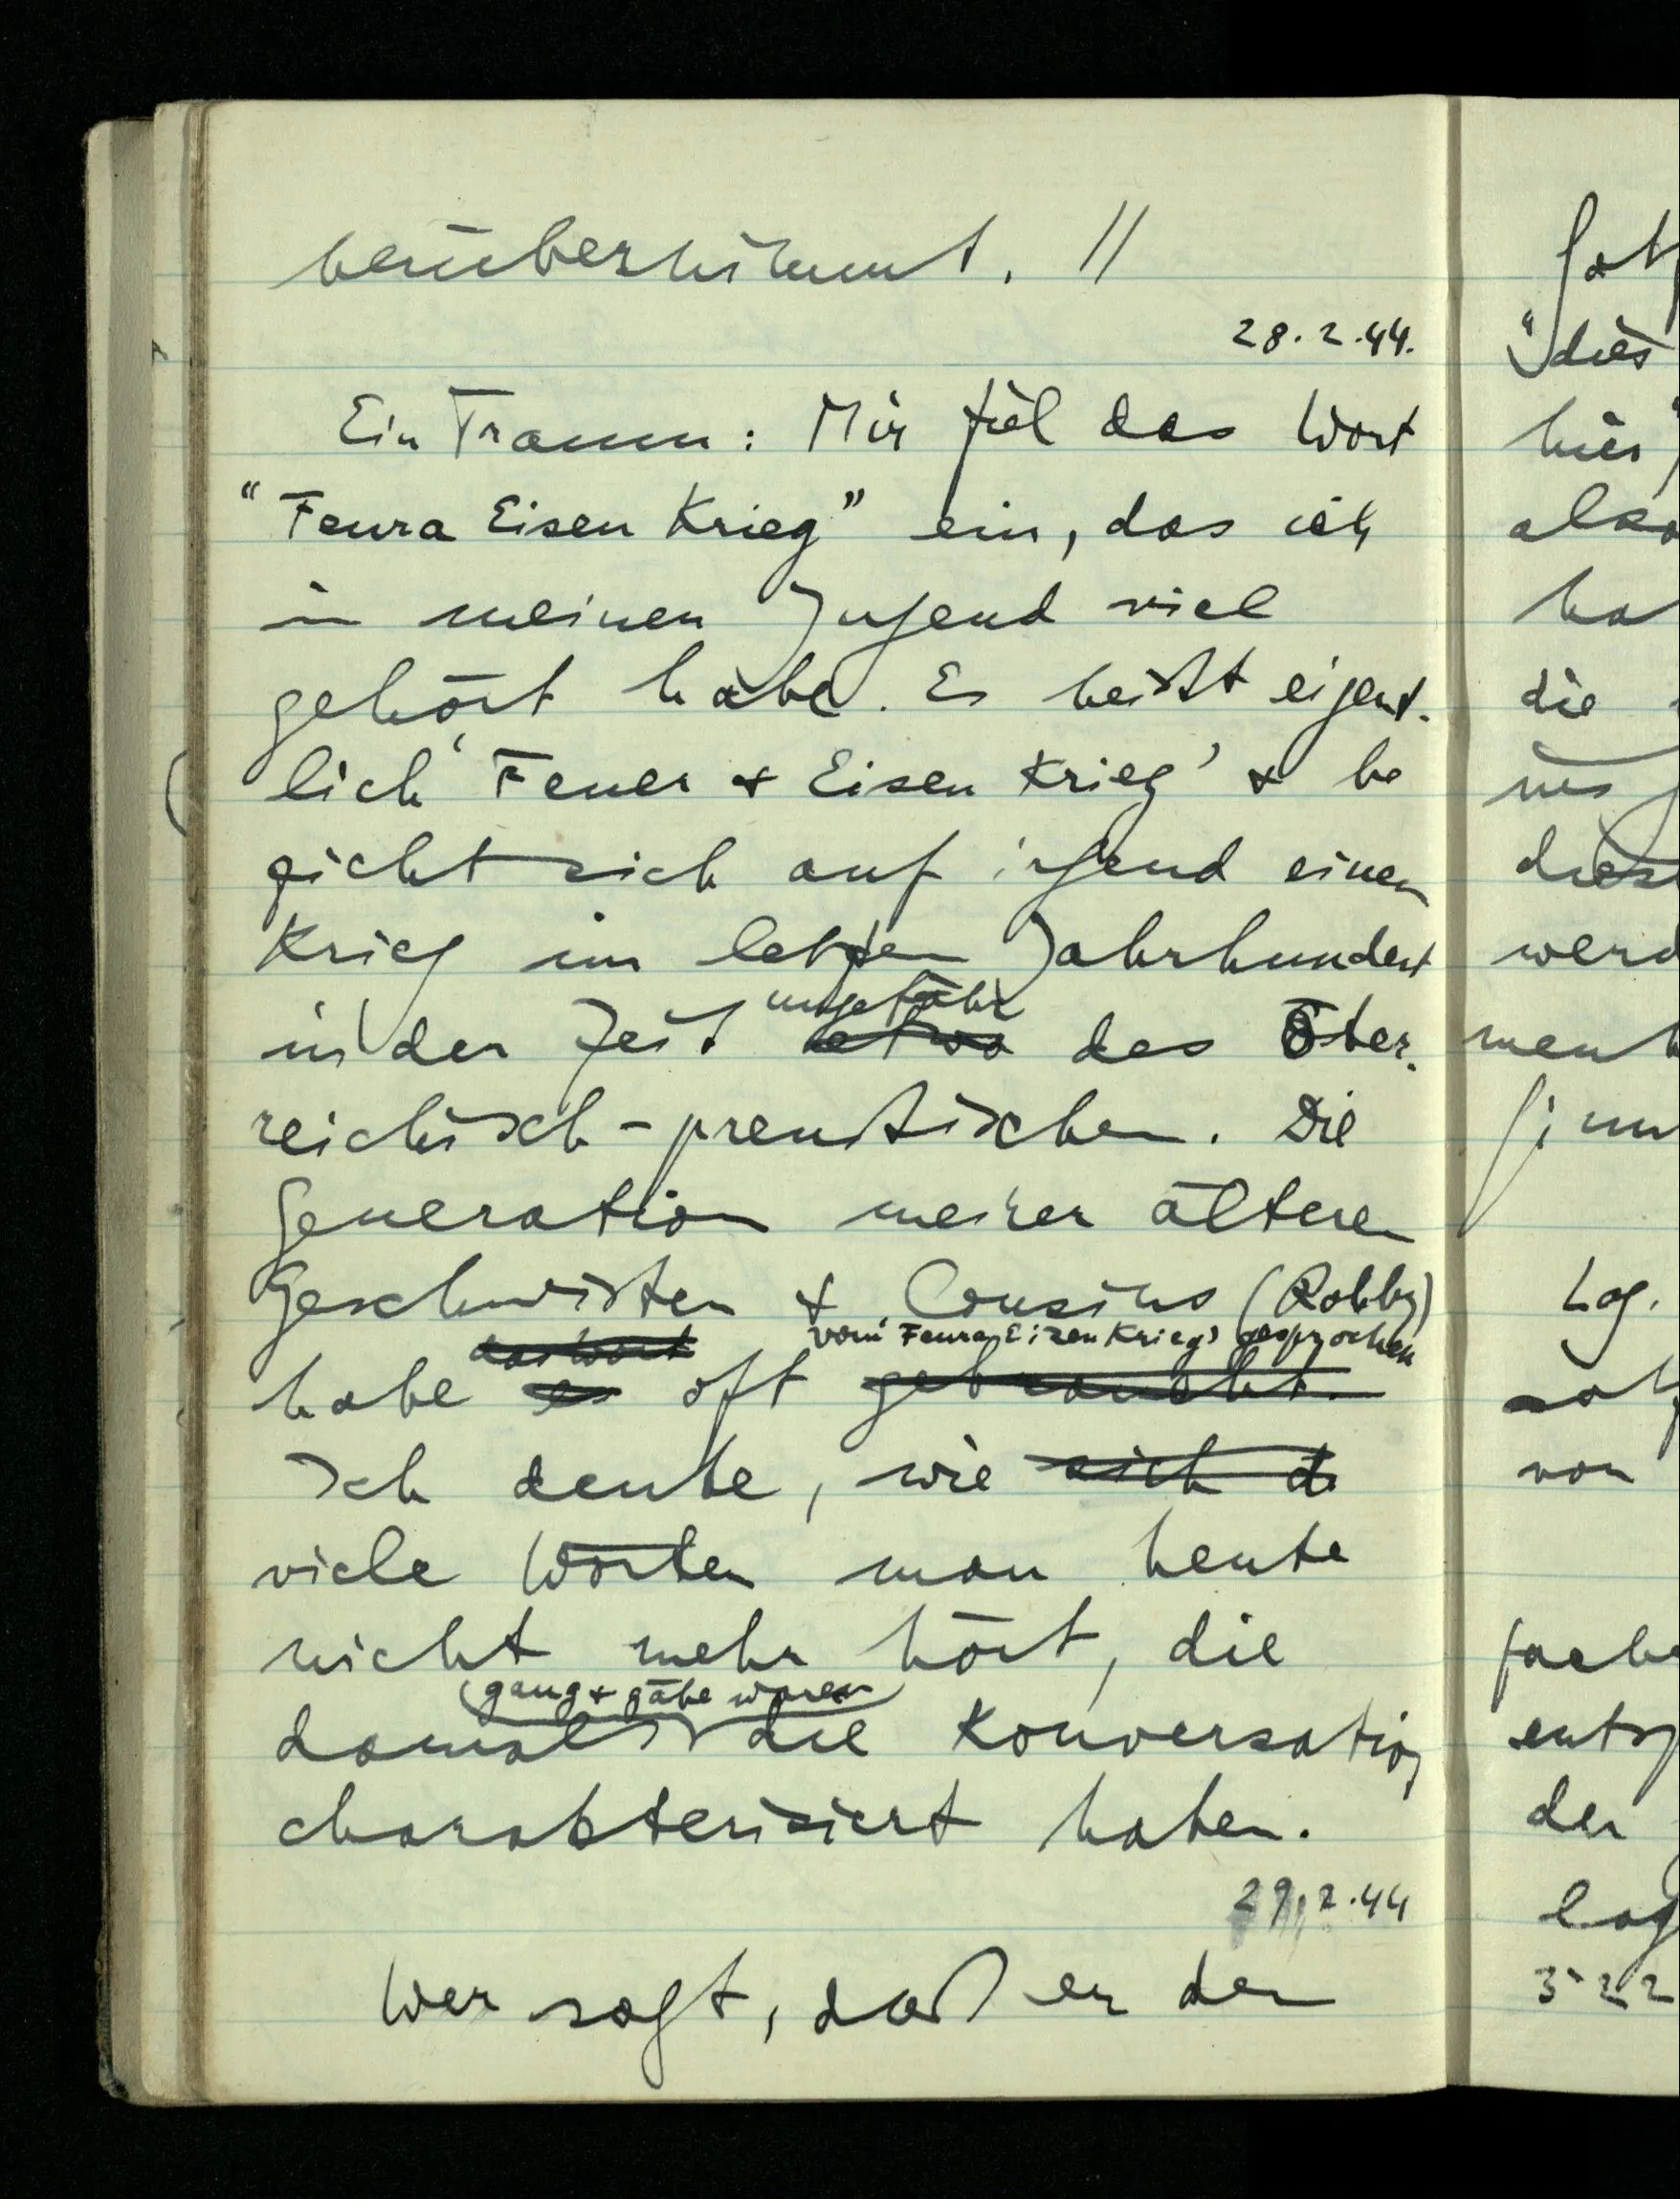 herübernimmt. //
28.2.44.
Ein Traum: Mir fiel das Wort
"Feura Eisen Krieg" ein, das ich
in meiner Jugend viel
gehört habe. Es heißt eigent-
lich 'Feuer & Eisen Krieg' & be
zieht sich auf irgend einen
Krieg im letzten Jahrhundert
ungefähr
in der Zeit etwa des Öster-
reichisch-preußischen. Die
Generation meiner älteren
Geschwister & Cousins (Robby)
das Wort vom 'Feura Eisen Krieg' gesprochen
habe es oft gebraucht.
Ich denke, wie sich d
viele Wörter man heute
nicht mehr hört, die
gang & gäbe waren
damals die Konversation
charakterisiert haben.
29.2.44
Wer sagt, daß er den
"dies
hier
also
die
werd
Log.
von
der